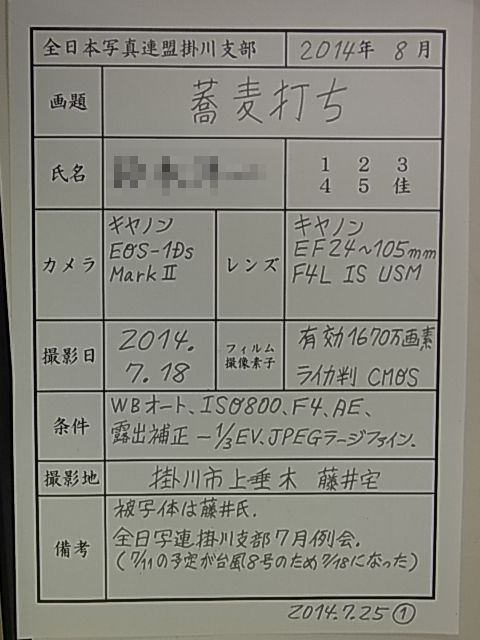 全日本写真連盟掛川支部 2014年 8月
画題 蕎麦打ち
氏名 1 2 3
4 5 佳
カメラ キヤノン
EOS-1Ds
Mark II
レンズ キヤノン
EF24~105mm
F4L IS USM
撮影日 2014.
7.18
フィルム
撮像素子
有効1670万画素
ライカ判 CMOS
条件 WBオート、ISO800、F4、AE、
露出補正 -1/3EV、JPEGラージファイン.
撮影地 掛川市上垂木 藤井宅
備考 被写体は藤井氏.
全日写連掛川支部7月例会.
(7/11の予定が台風8号のため7/18になった)
2014.7.25 ①